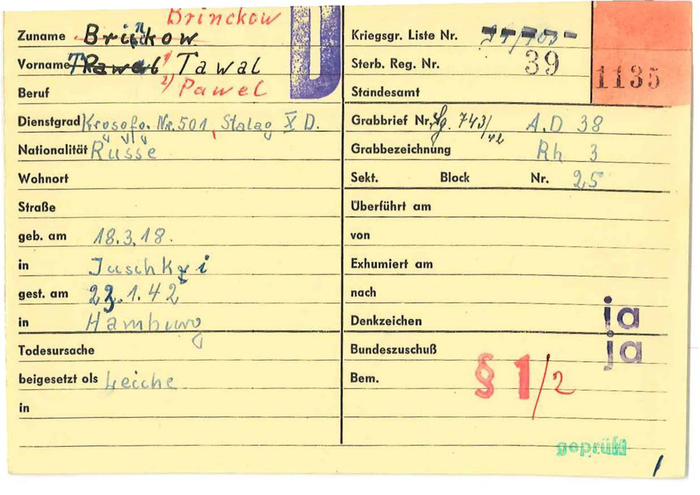 Brinckow
Zuname Brinkow
Vorname Tawal
Pawel
Beruf
Dienstgrad Krgsgfg. Nr. 501, Stalag X D.
Nationalität Russe
Wohnort
Straße
geb. am 18.3.18.
in Juschki
gest. am 23.1.42
in Hamburg
Todesursache
beigesetzt als Leiche
in
D
Kriegsgr. Liste Nr.
Sterb. Reg. Nr. 39
1135
Standesamt
Grabbrief Nr. 743/42 A.D 38
Grabbezeichnung Rh 3
Sekt. Block Nr. 25
Überführt am
von
Exhumiert am
nach
Denkzeichen ja
Bundeszuschuß ja
Bem. § 1/2
geprüft